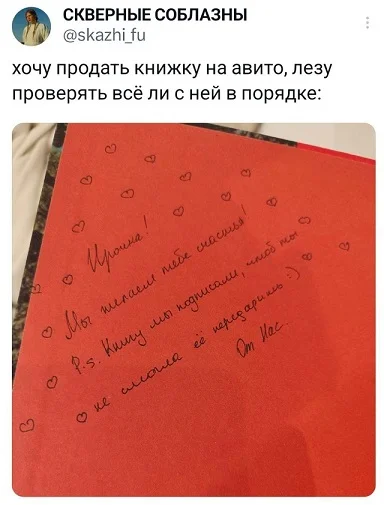 СКВЕРНЫЕ СОБЛАЗНЫ
@skazhi_fu
хочу продать книжку на авито, лезу
проверять всё ли с ней в порядке:
Ирочка!
Мы желаем тебе счастья!
P.s. Книгу мы подписали, чтоб ты
не смогла её передарить :)
От Нас.